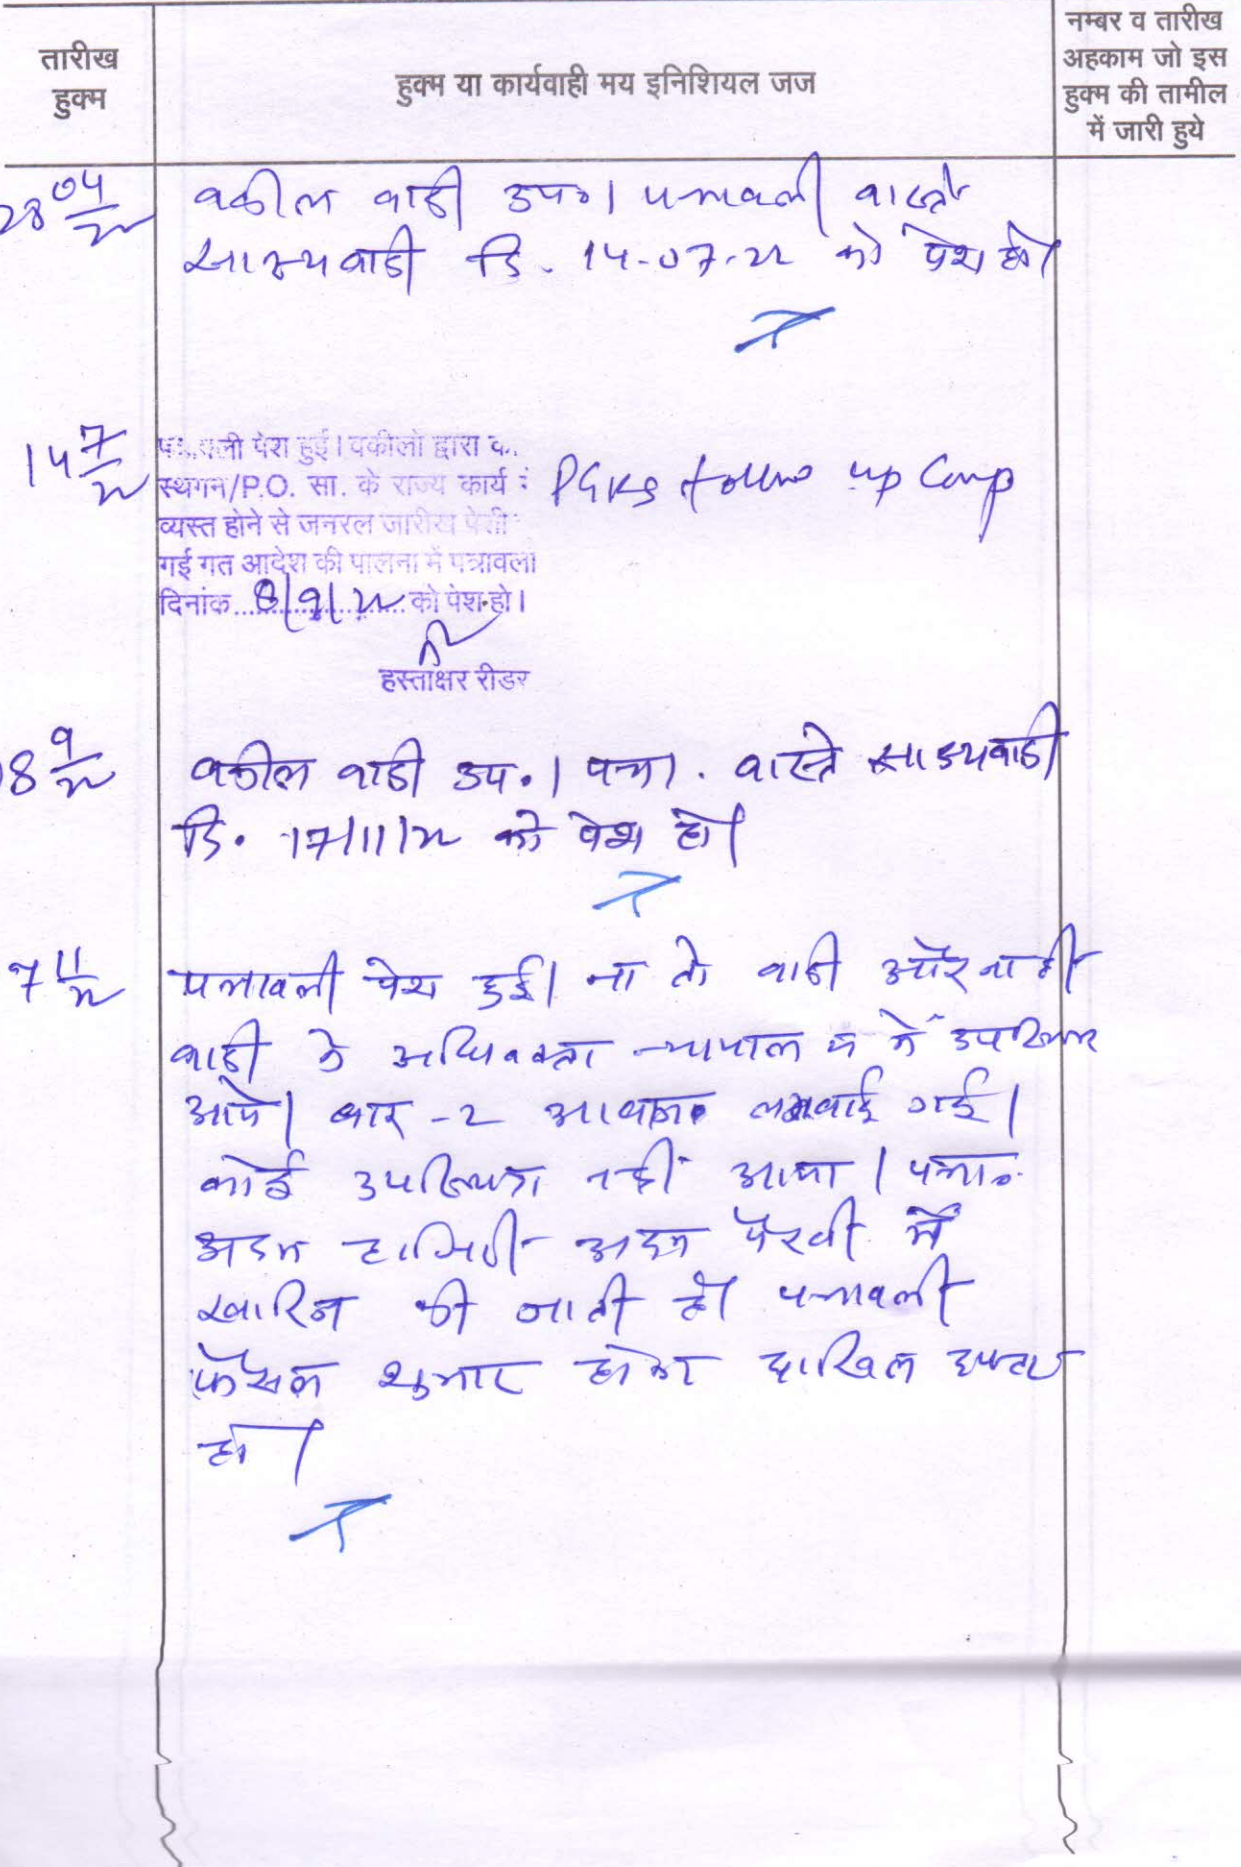 तारीख
हुक्म
हुक्म या कार्यवाही मय इनिशियल जज
नम्बर व तारीख
अहकाम जो इस
हुक्म की तामील
में जारी हुये
28 04/22
वकील वादी उप०। पत्रावली वास्ते
साक्ष्य वादी दि. 14-07-22 को पेश हो।
14 7/22
पत्रावली पेश हुई। वकीलों द्वारा
स्थगन/P.O. सा. के राज्य कार्य
व्यस्त होने से जनरल तारीख पेशी
गई गत आदेश की पालना में पत्रावली
दिनांक 8/9/22 को पेश हो।
हस्ताक्षर रीडर
follow up Camp
8 9/22
वकील वादी उप०। पत्रा. वास्ते साक्ष्य वादी
दि. 17/11/22 को पेश हो।
7 11/22
पत्रावली पेश हुई। ना तो वादी और ना ही
वादी के अधिवक्ता न्यायालय में उपस्थित
आये। बार -2 आवाज लगवाई गई।
कोई उपस्थित नहीं आया। पत्रा०
अदम हाजिरी अदम पैरवी में
खारिज की जाती है। पत्रावली
फैसल शुमार होकर दाखिल दफ्तर
हो।